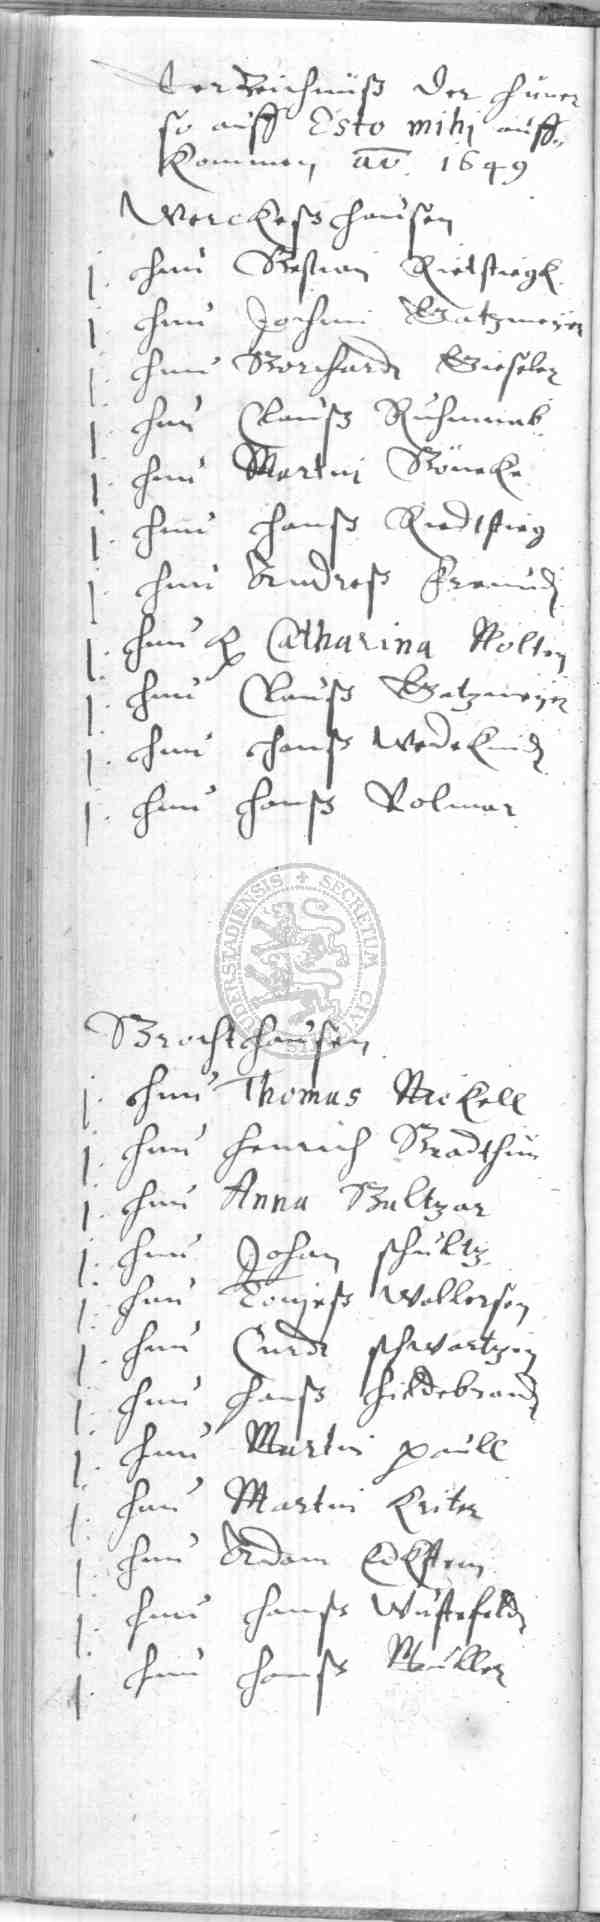 Verzeichnüß der Hüner
so auff Esto mihi auff-
kommen ao 1649
Werckeßhausen
1. Hun Bestian Rietstiegk
1. Hun Jochim Gatzmeyer
1. Hun Borchardt Gieseler
1. Hun Clauß
1. Hun Martin Böneke
1. Hun Hanß Riedtstieg
1. Hun Andreß
1. Hun Catharina Nolten
1. Hun Clauß Gatzmeyer
1. Hun Hanß Wedekindt
1. Hun Hanß Volmar
DUDERSTADIENSIS + SECRETUM CIVI
Brochthausen
1. Hun Thomas Nickell
1. Hun Henrich
1. Hun Anna Baltzar
1. Hun Johan Schultz
1. Hun Tonieß Wollersen
1. Hun Curdt Schwartzen
1. Hun Hanß Hildebrandt
1. Hun Martin Paull
1. Hun Martin Kriter
1. Hun Adam Eckstein
1. Hun Hanß Wüstefeldt
1. Hun Hanß Müller